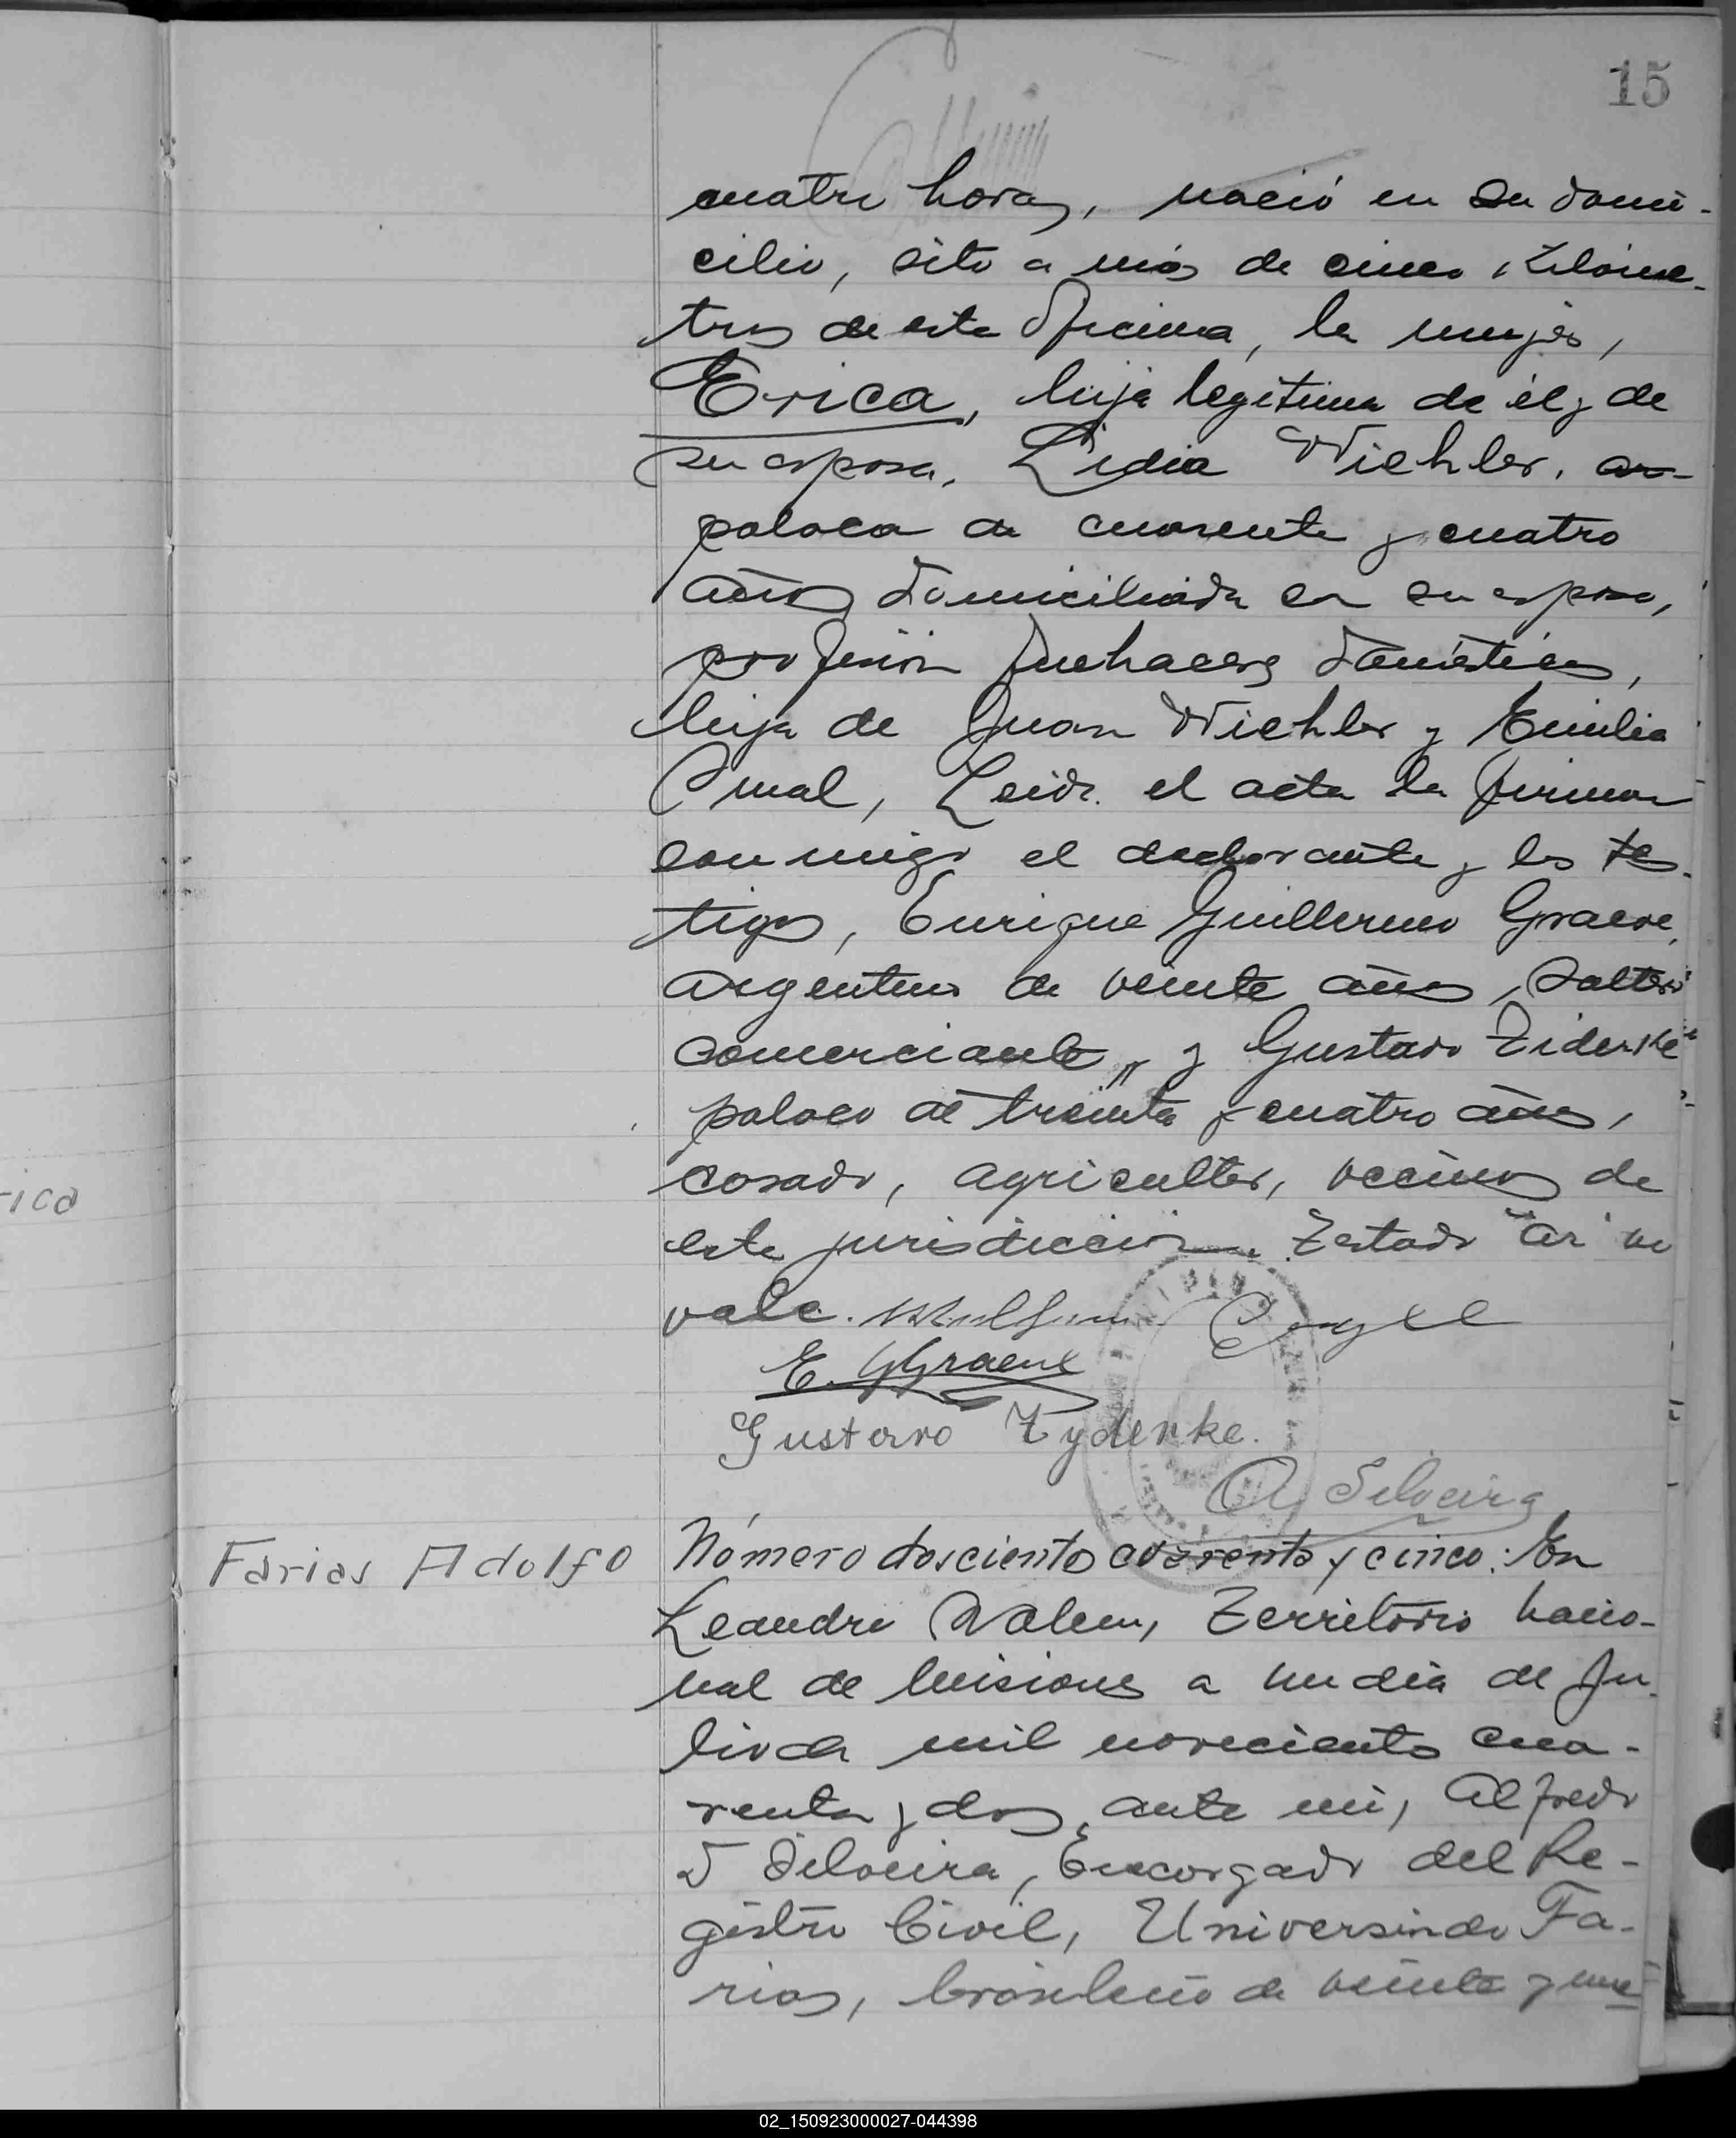 15
cuatro horas, nació en su domi-
cilio, sito a más de cinco Kilóme-
tros de esta Oficina, la mujer,
Erica, hija legítima de él y de
su esposa, Lidia Wiehler, ar-
polaca de cuarenta y cuatro
años domiciliada en su esposo,
profesión quehaceres domésticos,
hija de Juan Wiehler y Emilia
Leida el acta la firman
conmigo el declarante y los tes-
tigos, Enrique Guillermo Graeve,
argentino de veinte años, soltero
comerciante, y Gustavo Ziderke
polaco de treinta y cuatro años,
casado, agricultor, vecinos de
esta jurisdicción. Testado "ar" no
vale.
E. G Graeve
Gustavo Zyderke.
A Silveira
rica
Farias Adolfo
Número doscientos cuarenta y cinco: En
Leandro N Alem, Territorio Nacio-
nal de Misiones a un dia de Ju-
lio de mil novecientos cua-
renta y dos, ante mi, Alfredo
D Silveira, Encargado del Re-
gistro Civil, Universindo Fa-
rias, brasileño de veinte y nue
02_150923000027-044398